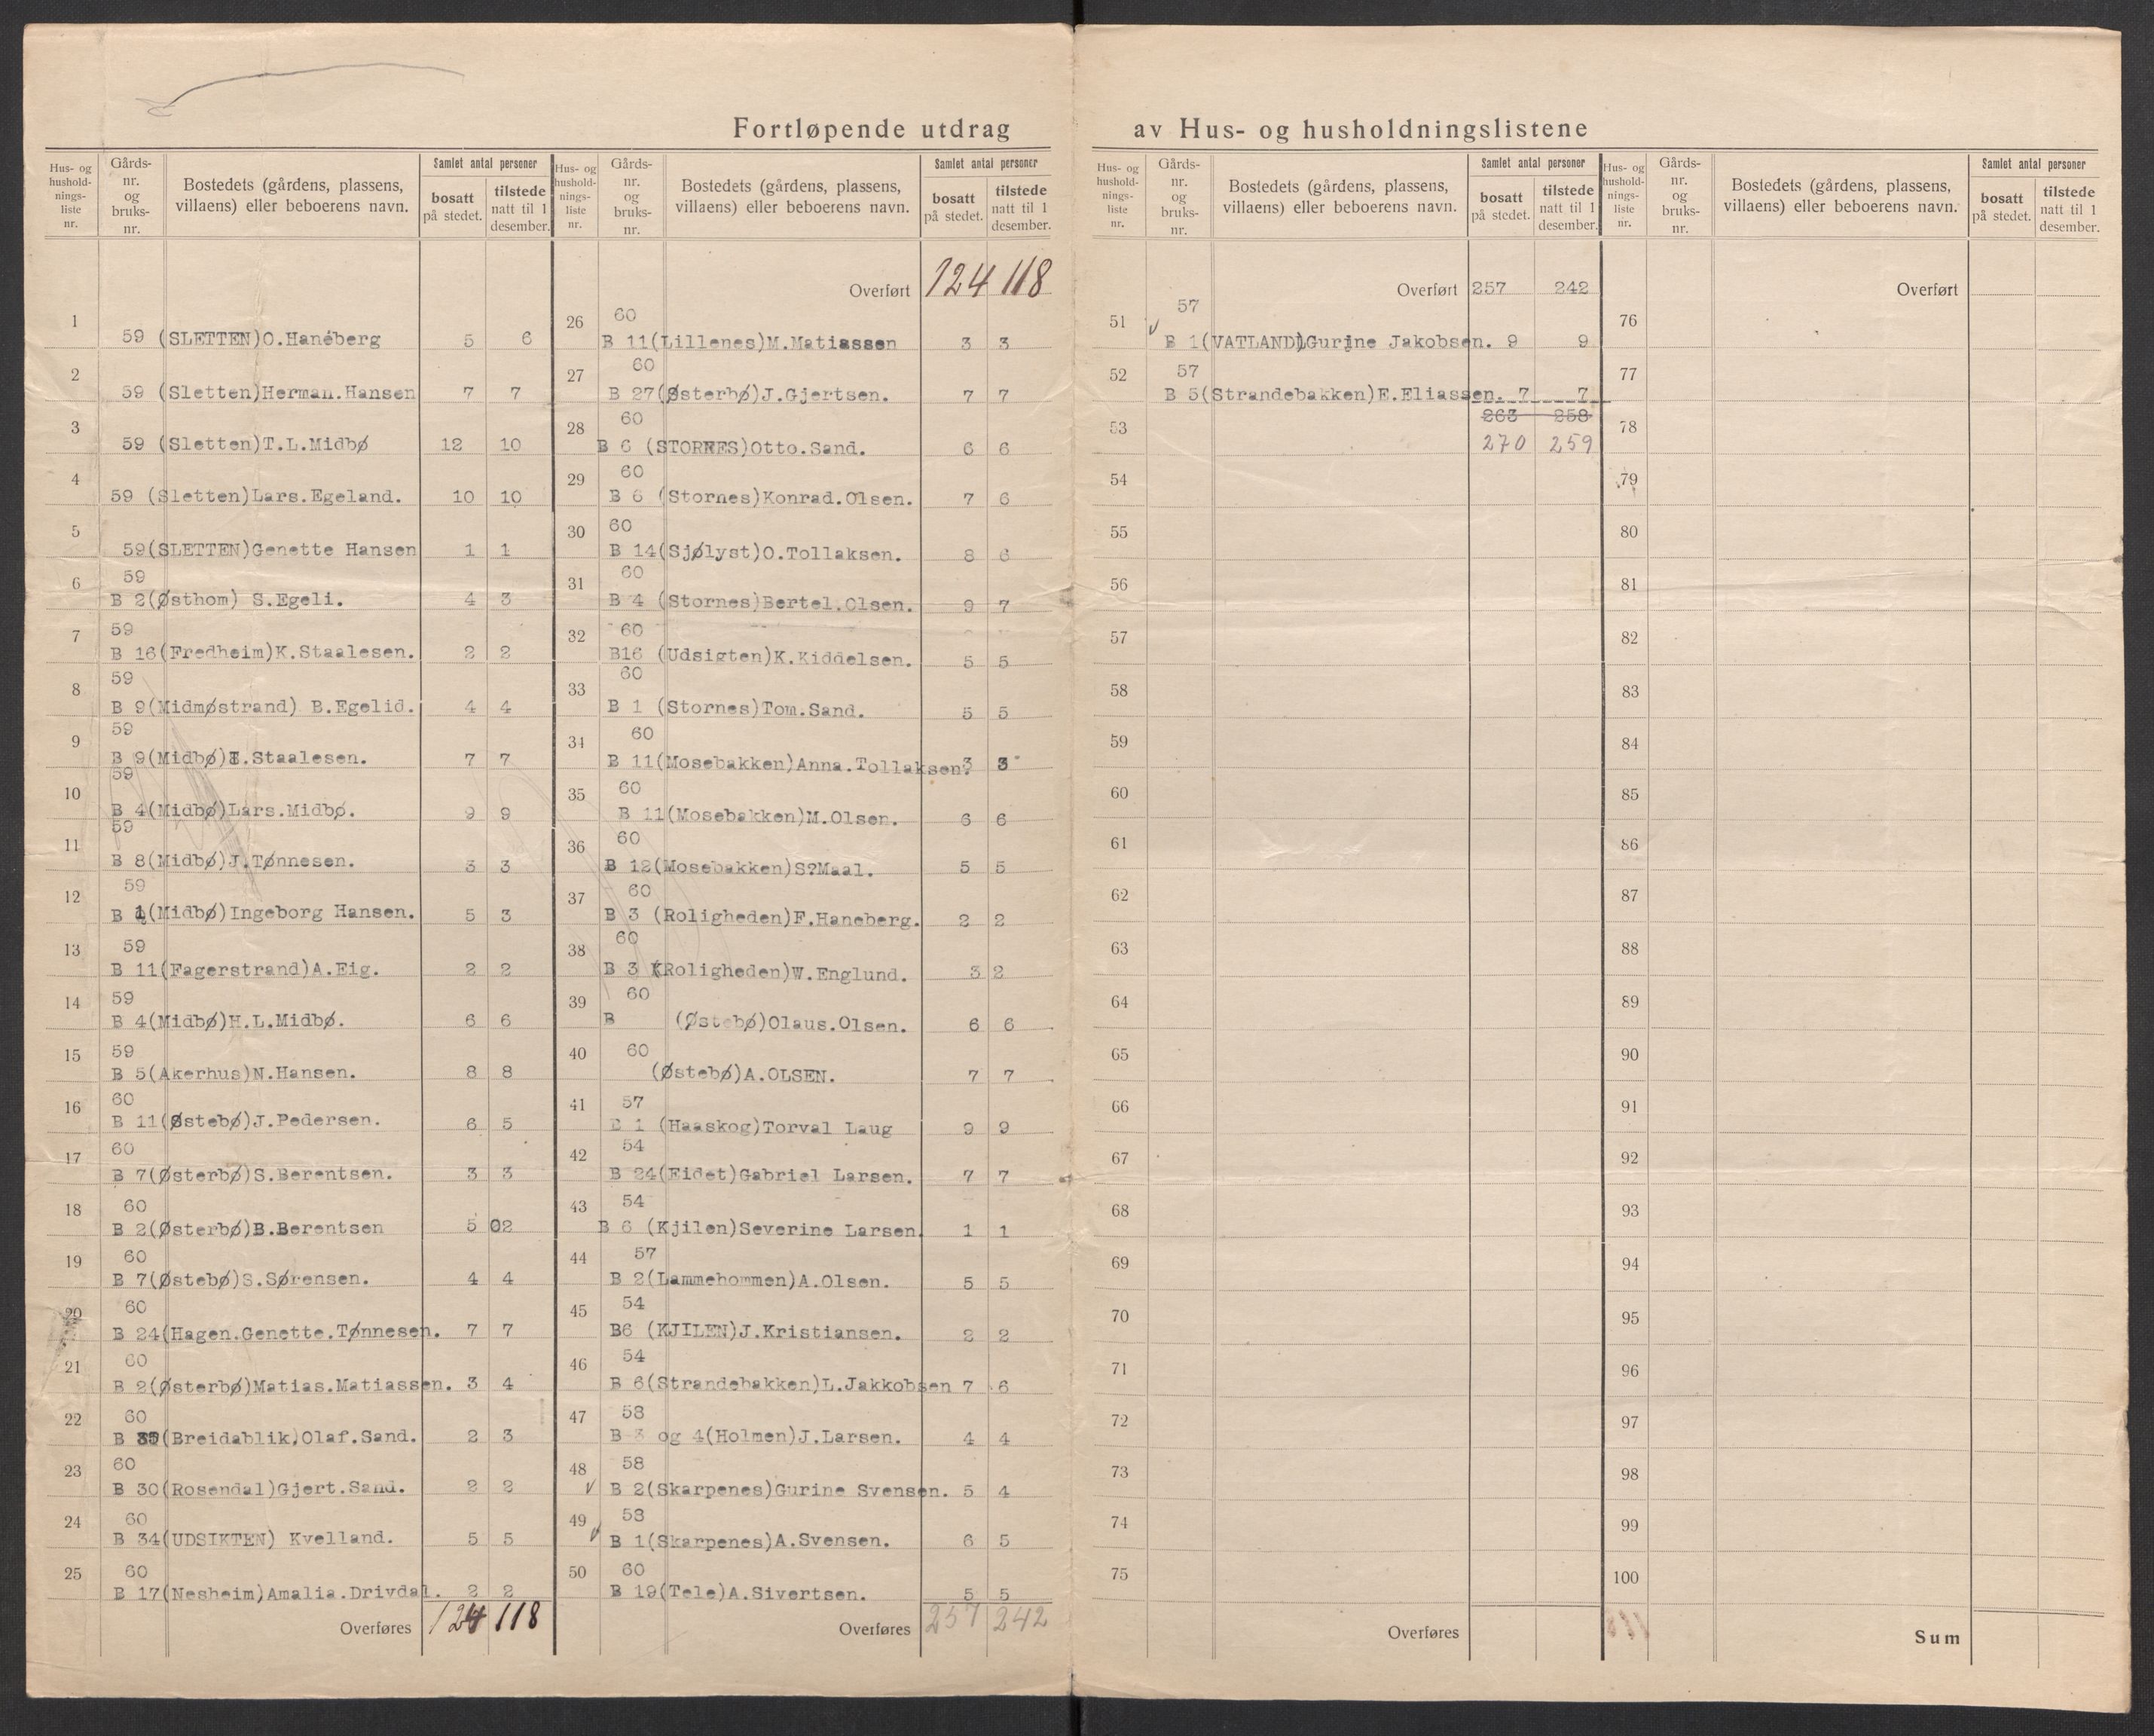 Fortløpende utdrag av Hus- og husholdningslistene
Hus- og hushold- nings- liste nr.
Gårds- nr. og bruks- nr.
Bostedets (gårdens, plassens, villaens) eller beboerens navn.
Samlet antal personer
bosatt på stedet.
tilstede natt til 1 desember.
1 59 (SLETTEN)O.Hanéberg 5 6
2 59 (Sletten)Herman.Hansen 7 7
3 59 (Sletten)T.L.Midbø 12 10
4 59 (Sletten)Lars.Egeland. 10 10
5 59(SLETTEN)Genette Hansen 1 1
6 59
B 2(Østhom) S.Egeli. 4 3
7 59
B 16(Fredheim)K.Staalesen. 2 2
8 59
B 9(Midmøstrand) B.Egelid. 4 4
9 59
B 9(Midbø)T.Staalesen. 7 7
10 59
B 4(Midbø)Lars.Midbø. 9 9
11 59
B 8(Midbø)J.Tønnesen. 3 3
12 59
B 1(Midbø)Ingeborg Hansen. 5 3
13 59
B 11(Fagerstrand)A.Eig. 2 2
14 59
B 4(Midbø)H.L.Midbø. 6 6
15 59
B 5(Akerhus)N.Hansen. 8 8
16 60
B 11(Østebø)J.Pedersen. 6 5
17 60
B 7(Østerbø)S.Berentsen. 3 3
18 60
B 2(Østerbø)B.Berentsen 5 02
19 60
B 7(Østebø)S.Sørensen. 4 4
20 60
B 24(Hagen.Genette.Tønnesen. 7 7
21 60
B 2(Østerbø)Matias.Matiassen. 3 4
22 60
B 35(Breidablik)Olaf.Sand. 2 3
23 60
B 30(Rosendal)Gjert.Sand. 2 2
24 60
B 34(UDSIKTEN) Kvelland. 5 5
25 60
B 17(Nesheim)Amalia.Drivdal. 2 2
Overføres 124 118
Hus- og hushold- nings- liste nr.
Gårds- nr. og bruks- nr.
Bostedets (gårdens, plassens, villaens) eller beboerens navn.
Samlet antal personer
bosatt på stedet.
tilstede natt til 1 desember.
Overført 124 118
26 60
B 11(Lillenes)M.Matiassen 3 3
27 60
B 27(Østerbø)J.Gjertsen. 7 7
28 60
B 6 (STORNES)Otto.Sand. 6 6
29 60
B 6 (Stornes)Konrad.Olsen. 7 6
30 60
B 14(Sjølyst)O.Tollaksen. 8 6
31 60
B 4 (Stornes)Bertel.Olsen. 9 7
32 60
B16 (Udsigten)K.Kiddelsen. 5 5
33 60
B 1 (Stornes)Tom.Sand. 5 5
34 60
B 11(Mosebakken)Anna.Tollaksen. 3 3
35 60
B 11(Mosebakken)M.Olsen. 6 6
36 60
B 12(Mosebakken)S?Maal. 5 5
37 60
B 3 (Roligheden)F.Haneberg. 2 2
38 60
B 3 (Roligheden)W.Englund. 3 2
39 60
B (Østebø)Olaus.Olsen. 6 6
40 60
(Østebø)A.OLSEN. 7 7
41 57
B 1 (Haaskog)Torval Laug 9 9
42 54
B 24(Eidet)Gabriel Larsen. 7 7
43 54
B 6 (Kjilen)Severine Larsen. 1 1
44 57
B 2(Lammehommen)A.Olsen. 5 5
45 54
B6 (KJILEN)J.Kristiansen. 2 2
46 54
B 6(Strandebakken)L.Jakkobsen 7 6
47 58
B 3 og 4(Holmen)J.Larsen. 4 4
48 58
B 2(Skarpenes)Gurine Svensen. 5 4
49 58
B 1(Skarpenes)A.Svensen. 6 5
50 60
B 19(Tele)A.Sivertsen. 5 5
Overføres 257 242
Hus- og hushold- nings- liste nr.
Gårds- nr. og bruks- nr.
Bostedets (gårdens, plassens, villaens) eller beboerens navn.
Samlet antal personer
bosatt på stedet.
tilstede natt til 1 desember.
Overført 257 242
51 57
B 1(VATLAND)Gurine Jakobsen. 9 9
52 57
B 5(Strandebakken)E.Eliassen. 7 7
263 258
53 270 259
54
55
56
57
58
59
60
61
62
63
64
65
66
67
68
69
70
71
72
73
74
75
Overføres
Hus- og hushold- nings- liste nr.
Gårds- nr. og bruks- nr.
Bostedets (gårdens, plassens, villaens) eller beboerens navn.
Samlet antal personer
bosatt på stedet.
tilstede natt til 1 desember.
Overført
76
77
78
79
80
81
82
83
84
85
86
87
88
89
90
91
92
93
94
95
96
97
98
99
100
Sum